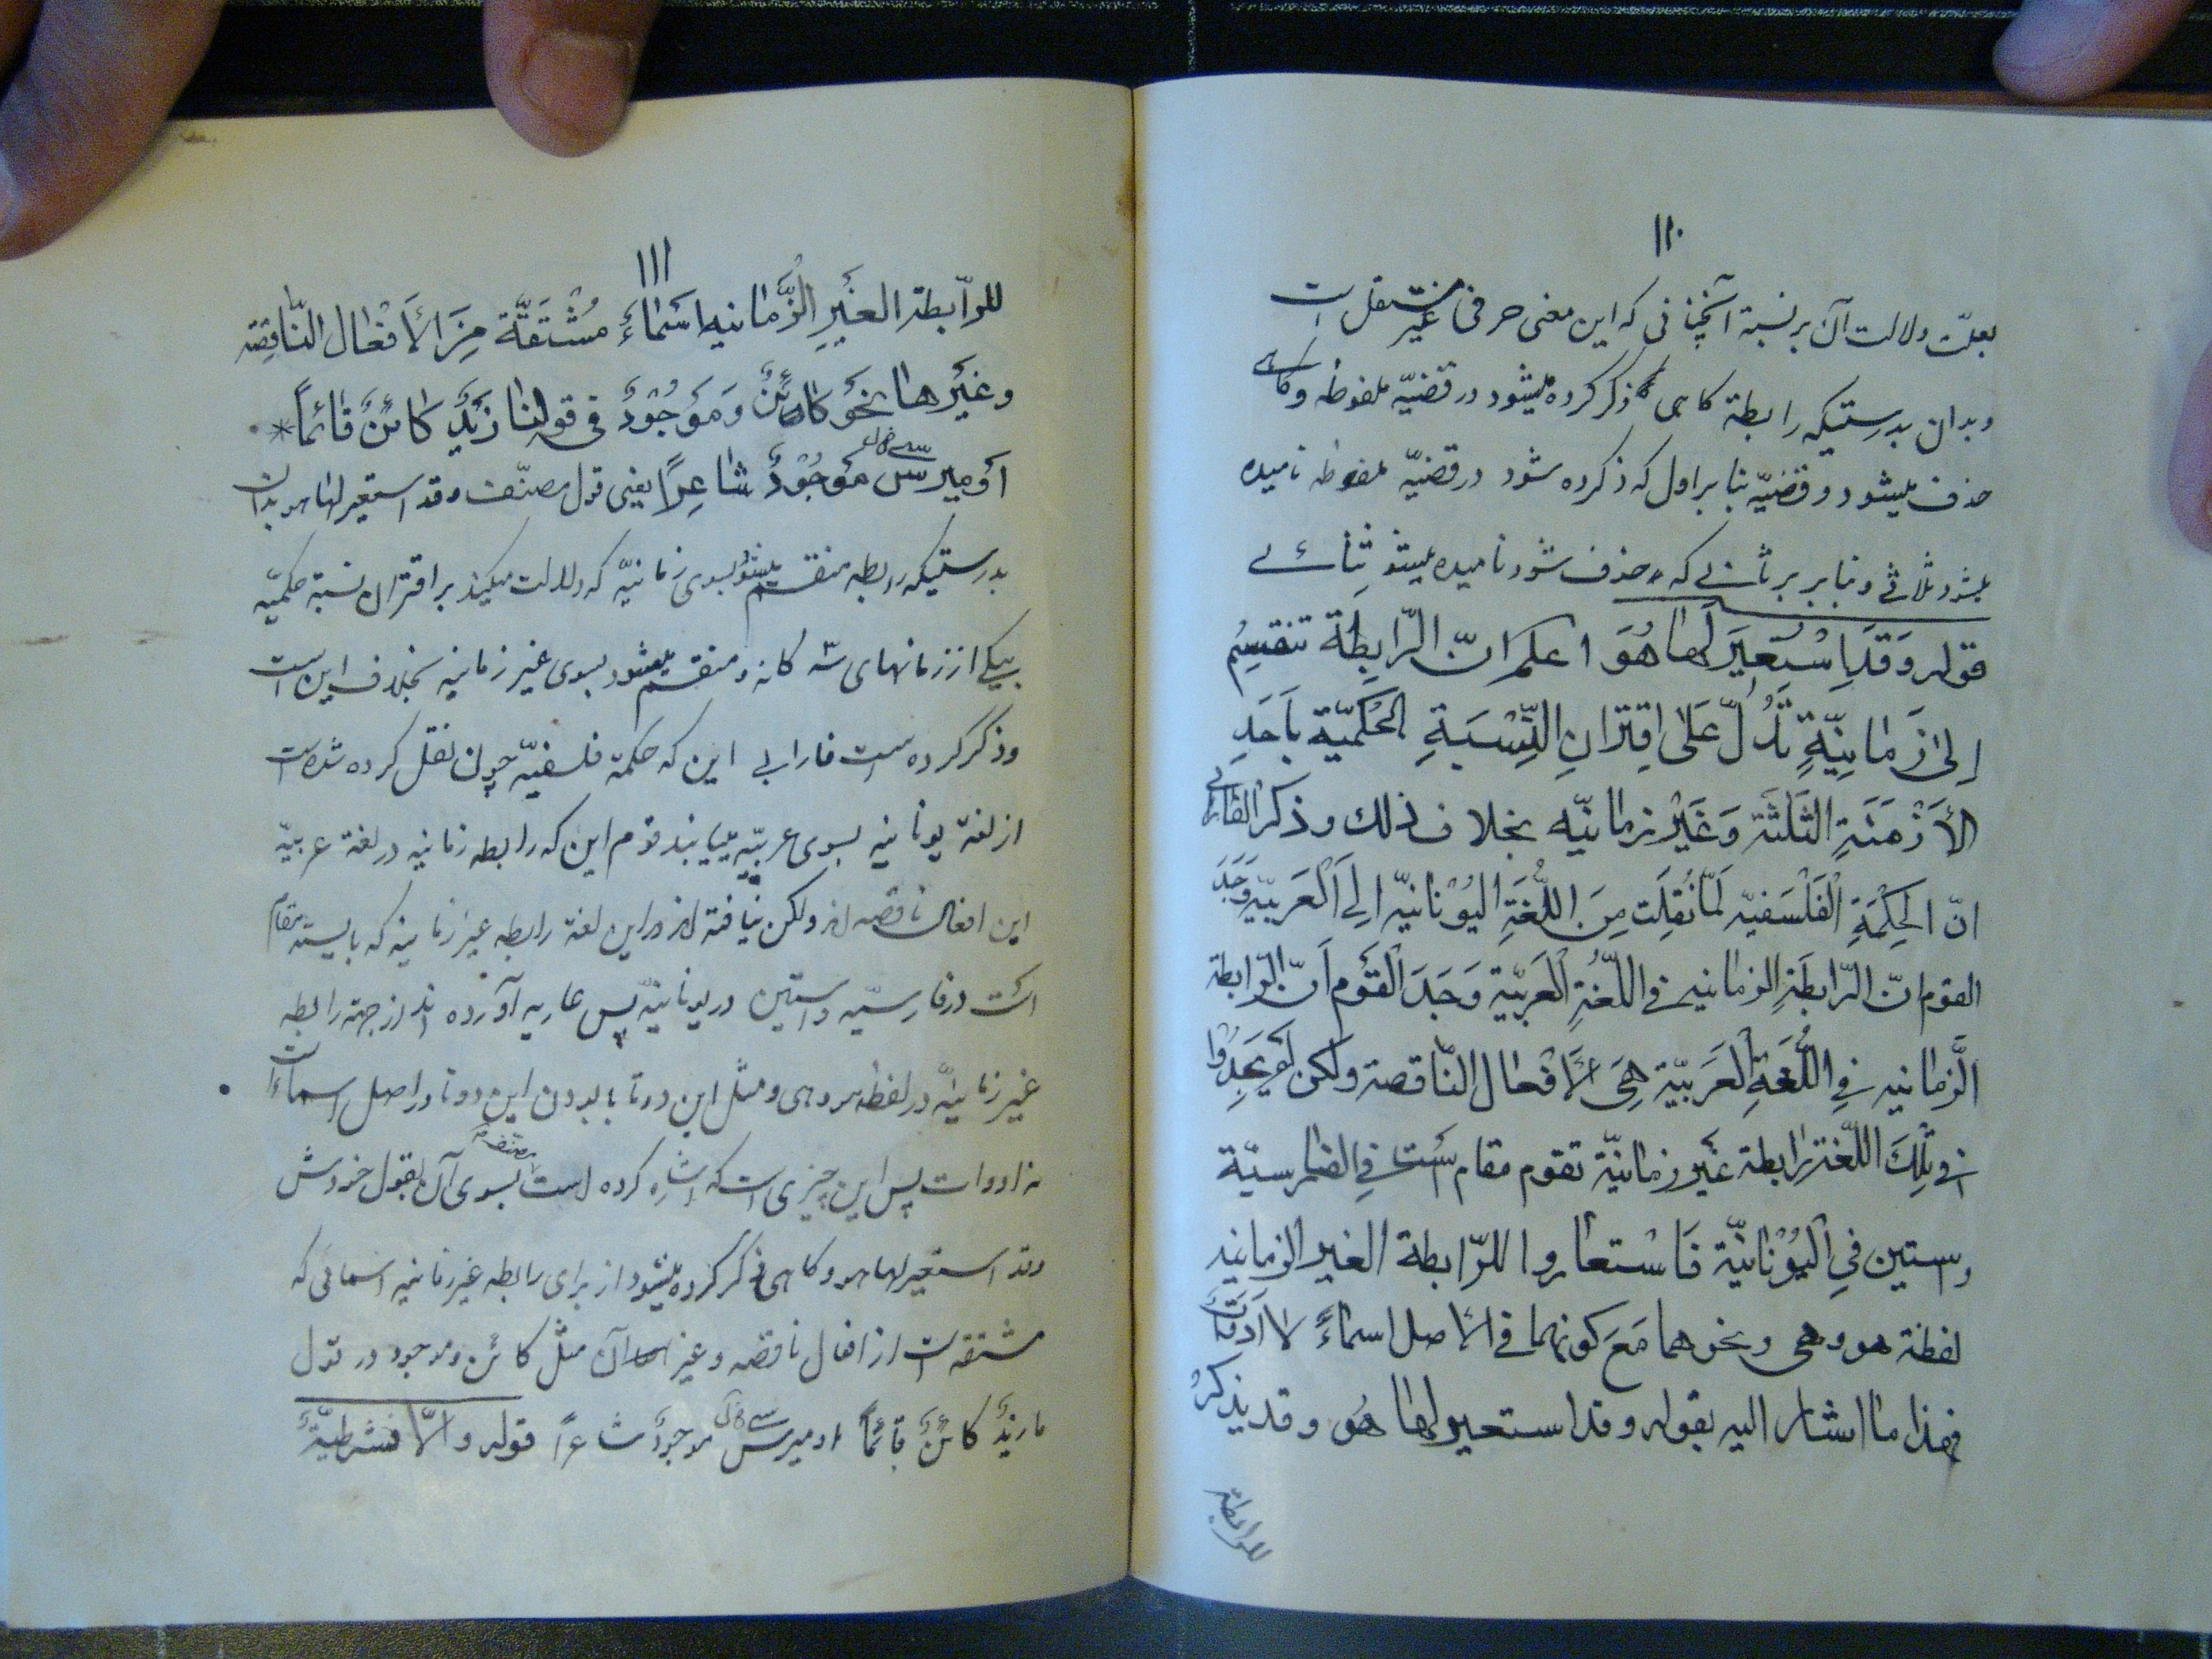 ۱۱۰
بعلّت دلالت آن بر نسبة آنچنانی که این معنی حرفی غیر مستقل است
و بدان بدرستیکه رابطة کاهی ذکر کرده میشود در قضیّه ملفوظه و کاهی
حذف میشود و قضیّه بنا بر اول که ذکر ده شود در قضیّه ملفوظه نامیده
میشود ثلاثی و بنا بر بر ثانی که حذف شود نامیده میشود ثنائی
قوله وَقَدِ اسْتُعِیرَ لَهَا هُوَ اعلم انّ الرّابِطَة تنقَسِمُ
اِلیٰ زَمانِیَّةٍ تَدُلّ عَلیٰ اقِتِرانِ النِّسْبَةِ الحُکمیّة بِاَحَدِ
الأَزْمَنَةِ الثَلثَة وَغَیْر زمانیّه بخلاف ذلك وذکر الفارابی
انّ الحِکْمَةِ الْفَلْسَفیّه لَمّا نُقِلَت مِنَ اللُّغَةِ الیُوْنانیّه اِلَی الْعَرَبیّة وَجَدَ
القوم انّ الرّابِطَةِ الزمانیه فی اللّغُةِ الْعَرَبیّة وَجَدَ الْقَوْم اَنّ الرّابطة
الزّمانیه فی اللُّغَةِ الْعَرَبیّة هِیَ الأَفْعال النّاقصة ولکن لَمْ یَجِدُوا
فی تِلْكَ اللّغة رابطة غَیر زمانیّة تقوم مقام اَسْت فی الفارسیّة
و استین فی الیُوْنانیَّة فَاسْتعاروا للرّابطة الغیر الزمانیه
لفظة هو وهی ونحوهما مَعَ کونهما فی الأصل اسماءً لا اَدَوات
فهذا ما اشار الیه بقوله وقد استعیر لها هُو وقد یذکرُ
للرابطة
۱۱۱
للرّابطة الغَیرِ الزّمانیه اَسماءُ مُشْتَقَّة مِنَ الأَفْعال النّاقِصَه
وغَیْرها نَحْو کائنٌ وَمَوجُوْدٌ فی قولنا زَیْدٌ کائنٌ قائماً *
اَوْمیرس مَوجُوْدٌ شاعِراً یعنی قول مصنّف وقد استعیر لها هو بدان
بدرستیکه رابطه منقسم میشود بسوی زمانیّه که دلالت میکند بر اقتران نسبة حکمیّه
بیکی از زمانهای سه کانه و منقسم میشود بسوی غیر زمانیه بخلاف این است
وذکر کرده است فارابی این که حکمة فلسفیّه چون نقل کرده شده است
از لغة یونانیه بسوی عربیّه مییابند قوم این که رابطه زمانیه در لغة عربیّه
این افعال ناقصه اند ولکن نیافته اند در این لغة رابطه غیر زمانیه که بایسته مقام
است در فارسیّه و استین در یونانیّه پس عاریه آورده اند از جهة رابطه
غیر زمانیّه در لفظ هو وهی ومثل این دو تا با بودن این دو تا در اصل اسماء است
نه ادوات پس این چیزی است که اشاره کرده است مصنف بسوی آن بقول خودش
وقد استعیر لها هو وکاهی ذکر کرده میشود از برای رابطه غیر زمانیه اسمائی که
مشتقه است از افعال ناقصه وغیر آن مثل کائن وموجود در قول
ما زیدٌ کائنٌ قائماً اومیرس موجودٌ شاعراً قوله والّا فشرطیّةٌ